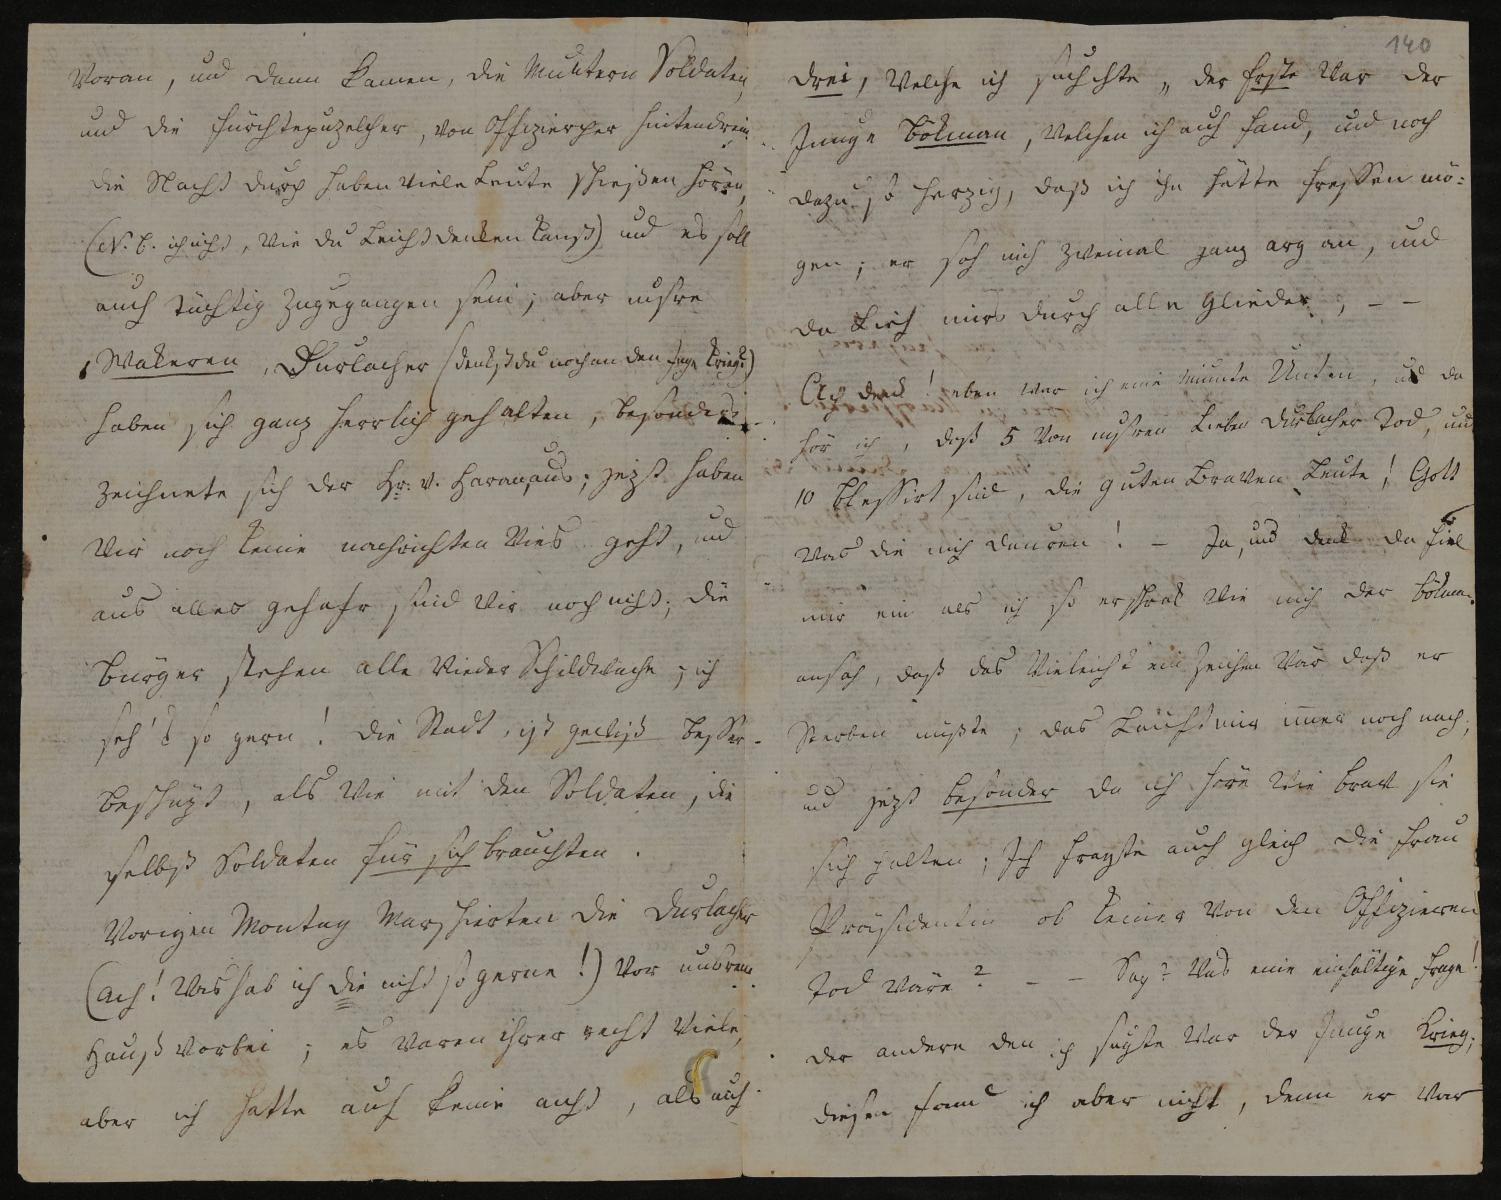 Voran, und dann kamen, die Muntern Soldaten,
und die fürchtepuzelcher, von Offiziercher hintendrein.
die Nacht durch haben viele Leute schießen hören,
(N. B. ich nicht, wie du Leicht denken kanst) und es soll
auch tüchtig zugegangen sein; aber unsre
Wakeren, Durlacher (denkst du noch an den Jnge Krieg?)
haben sich ganz herrlich gehalten, besonders
zeichnete sich der Hr: v. Haran aus; jezt haben
wir noch keine nachrichten wies geht, und
aus aller gefahr sind wir noch nicht; die
bürger stehen alle wieder Schildwache; ich
seh's so gern! die Stadt, ist gewiß besser
beschüzt, als wie mit den Soldaten, die
selbst Soldaten für sich brauchten.
Vorigen Montag Marschierten die Durlacher
(ach! was hab ich die nicht so gerne!) vor unsrem
Hauß vorbei; es waren ihrer recht viele,
aber ich hatte auf keine acht, als auf
140
drei, welche ich suchte, der Erste war der
Junge Bökman, welchen ich auch fand, und noch
dazu so herzig, daß ich ihn hätte fressen mö:
gen; er sah mich zweimal ganz arg an, und
da lief mirs durch alle Glieder, – –
Ach denk! eben war ich eine minute Unten, und da
hör ich, daß 5 von unsren Lieben Durlacher Tod, und
10 blessirt sind, die guten Braven Leute! Gott
was die mich dauren! – Ja, und denk da fiel
mir ein als ich so erschrak wie mich der Bökman
ansah, daß das vieleicht ein Zeichen wär daß er
Sterben müßte; das läuft mir imer noch nach,
und jezt besonder da ich höre wie brav sie
sich halten; Ich fragte auch gleich die Frau
Präsidentin ob keiner von den Offizieren
Tod wäre? – – Sag? was eine einfältige frage!
der andere den ich suchte war der Junge Krieg;
diesen fand ich aber nicht, denn er war